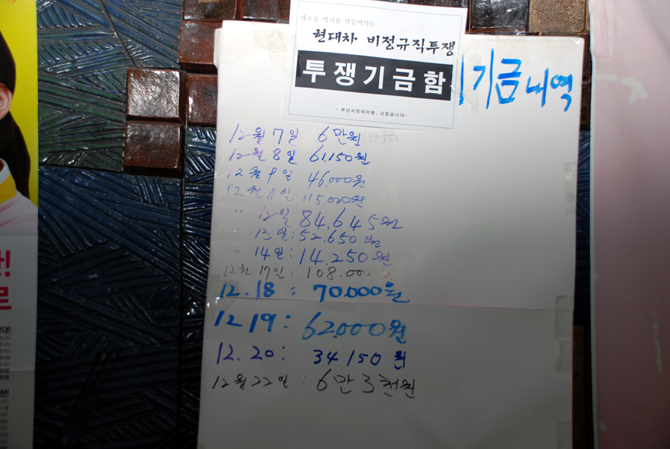 새로운 역사를 만들어가는
현대차 비정규직투쟁
투쟁기금함
기금내역
12월 7일 6만원
12월 8일 61,150원
12월 9일 46,000원
12월 11일 115,000원
" 12일 84,645원
13일: 52,650원
" 14일: 14,250원
12월 17일: 108,000
12.18: 70,000원
12.19: 62,000원
12.20: 34150원
12월 22일: 6만 3천원